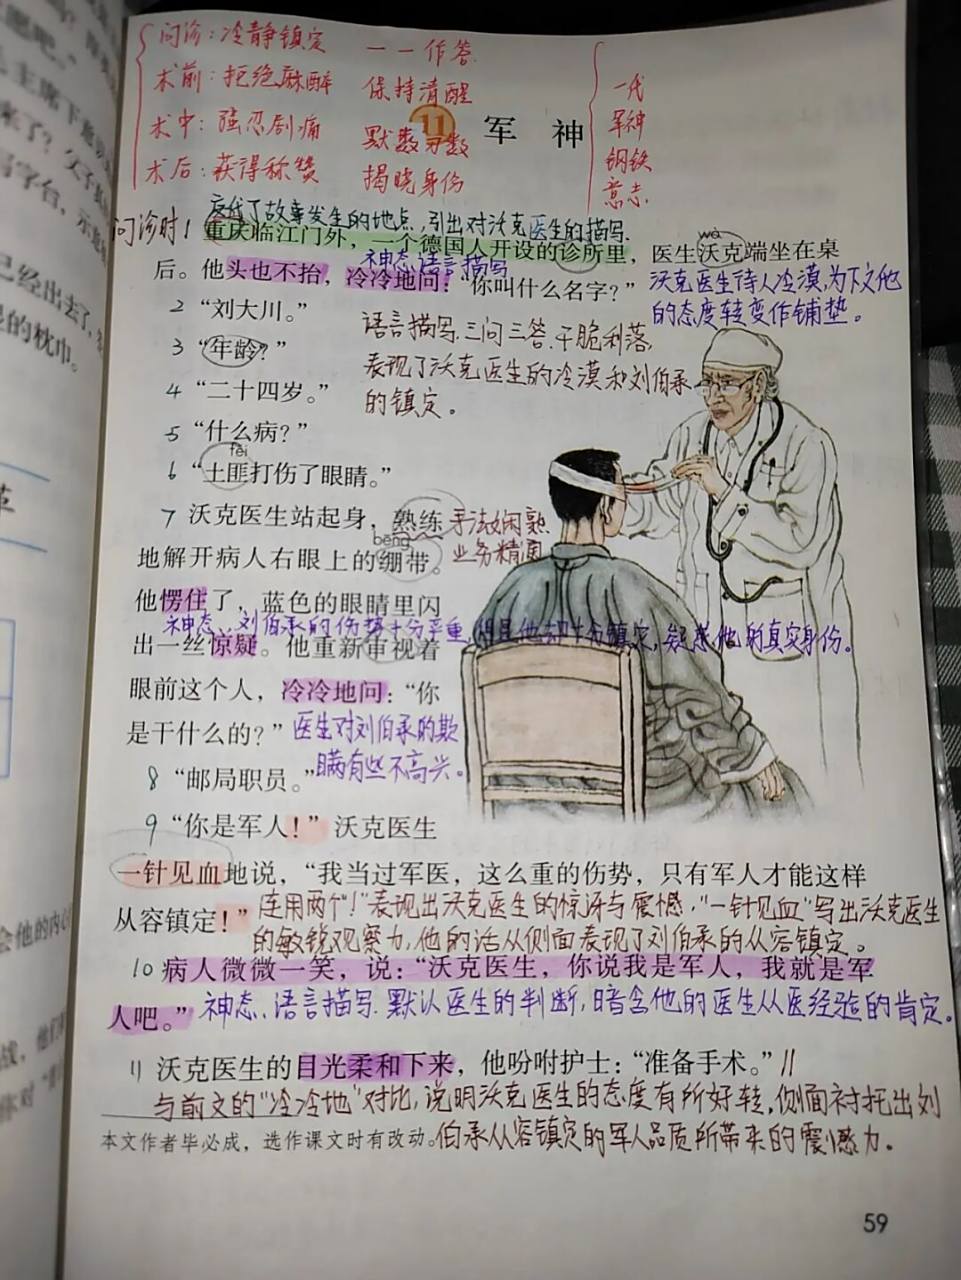 问诊：冷静镇定 一一作答.
术前：拒绝麻醉 保持清醒
术中：强忍剧痛 默数刀数
术后：获得称赞 揭晓身份
一代
军神
钢铁
意志
11 军神
交代了故事发生的地点，引出对沃克医生的描写.
问诊时1 重庆临江门外，一个德国人开设的诊所里，医生沃克端坐在桌
wò
神态.语言描写
后。他头也不抬，冷冷地问：“你叫什么名字？”
沃克医生待人冷漠，为下文他
的态度转变作铺垫。
2 “刘大川。”
3 “年龄？”
语言描写.三问三答.干脆利落，
表现了沃克医生的冷漠和刘伯承
的镇定。
4 “二十四岁。”
5 “什么病？”
fěi
6 “土匪打伤了眼睛。”
7 沃克医生站起身，熟练
手法娴熟
业务精通
bēng
地解开病人右眼上的绷带。
他愣住了，蓝色的眼睛里闪
神态，刘伯承的伤势十分严重，但是他却十分镇定，疑惑他的真实身份。
出一丝惊疑。他重新审视着
眼前这个人，冷冷地问：“你
是干什么的？”
医生对刘伯承的欺
瞒有些不高兴。
8 “邮局职员。”
9 “你是军人！”沃克医生
一针见血地说，“我当过军医，这么重的伤势，只有军人才能这样
从容镇定！”
连用两个“！”表现出沃克医生的惊讶与震撼，“一针见血”写出沃克医生
的敏锐观察力，他的话从侧面表现了刘伯承的从容镇定。
10 病人微微一笑，说：“沃克医生，你说我是军人，我就是军
人吧。”
神态、语言描写.默认医生的判断，暗含他的医生从医经验的肯定。
11 沃克医生的目光柔和下来，他吩咐护士：“准备手术。”//
与前文的“冷冷地”对比，说明沃克医生的态度有所好转，侧面衬托出刘
伯承从容镇定的军人品质所带来的震撼力。
本文作者毕必成，选作课文时有改动。
59